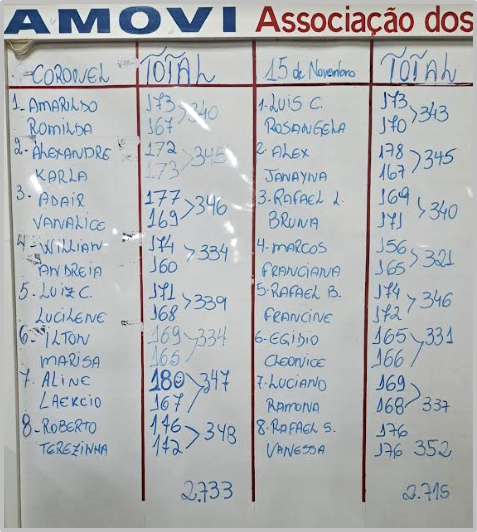 AMOVI Associação dos
CORONEL TOTAL 15 de Novembro TOTAL
1- AMARILDO 173 >340 1. LUIS C. 173 >343
ROMILDA 167 ROSANGELA 170
2- ALEXANDRE 172 >345 2 ALEX 178 >345
KARLA 173 JANAYNA 167
3- ADAIR 177 >346 3. RAFAEL L. 169 >340
VANALICE 169 BRUNA 171
4- WILLIAN 174 >334 4- MARCOS 156 >321
ANDREIA 160 FRANCIANA 165
5. LUIZ C. 171 >339 5- RAFAEL B. 174 >346
LUCILENE 168 FRANCINE 172
6- ILTON 169 >334 6- EGIDIO 165 >331
MARISA 165 CLEONICE 166
7. ALINE 180 >347 7- LUCIANO 169
LAERCIO 167 RAMONA 168 337
8- ROBERTO 146 >348 8- RAFAEL S. 176
TEREZINHA 172 VANESSA 176 352
2.733 2.715